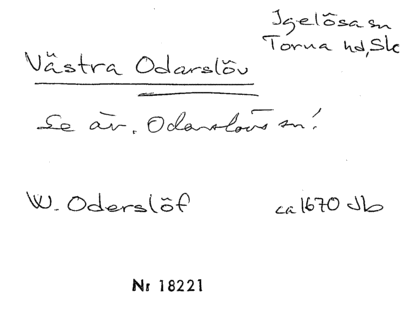 Igelösa sn
Torna hd, Sk
Västra Odarslöv
Se äv. Odarslövs sn!
W. Oderslöf ca 1670 Jb
Nr 18221